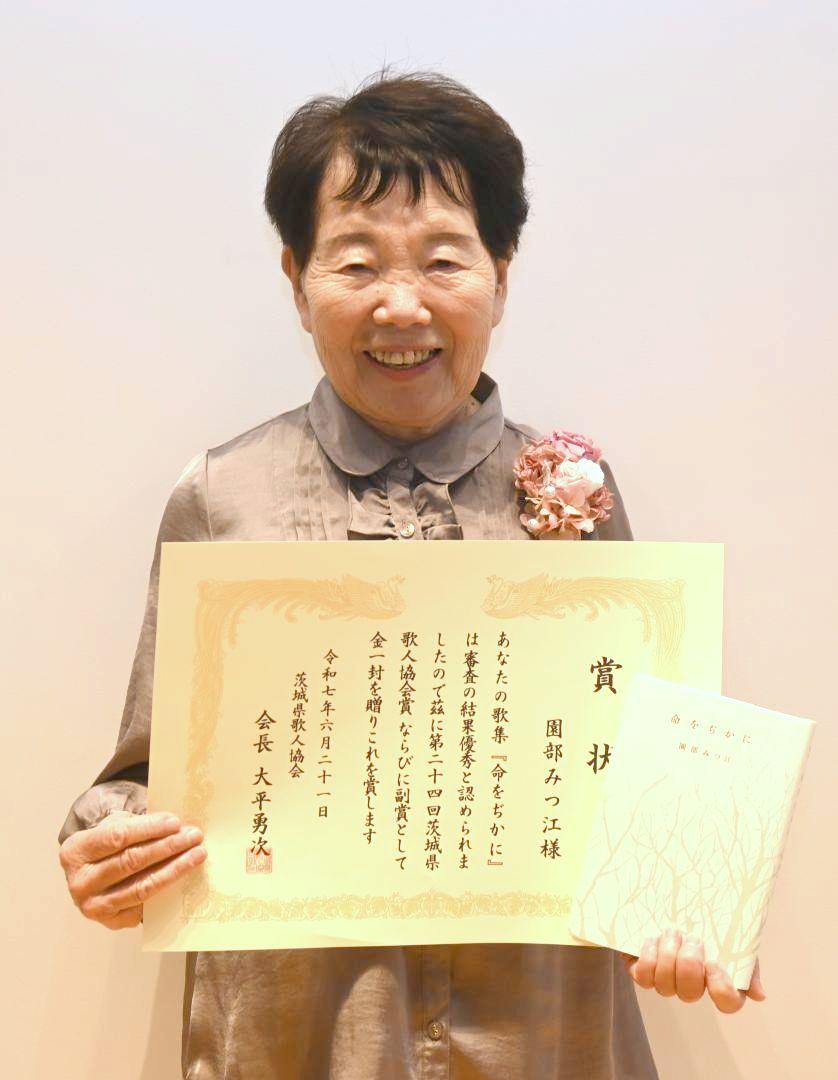 賞状
園部みつ江様
あなたの歌集『命をぢかに』
は審査の結果優秀と認められま
したので茲に第二十四回茨城県
歌人協会賞ならびに副賞として
金一封を贈りこれを賞します
令和七年六月二十一日
茨城県歌人協会
会長 大平勇次
命をぢかに
園部みつ江